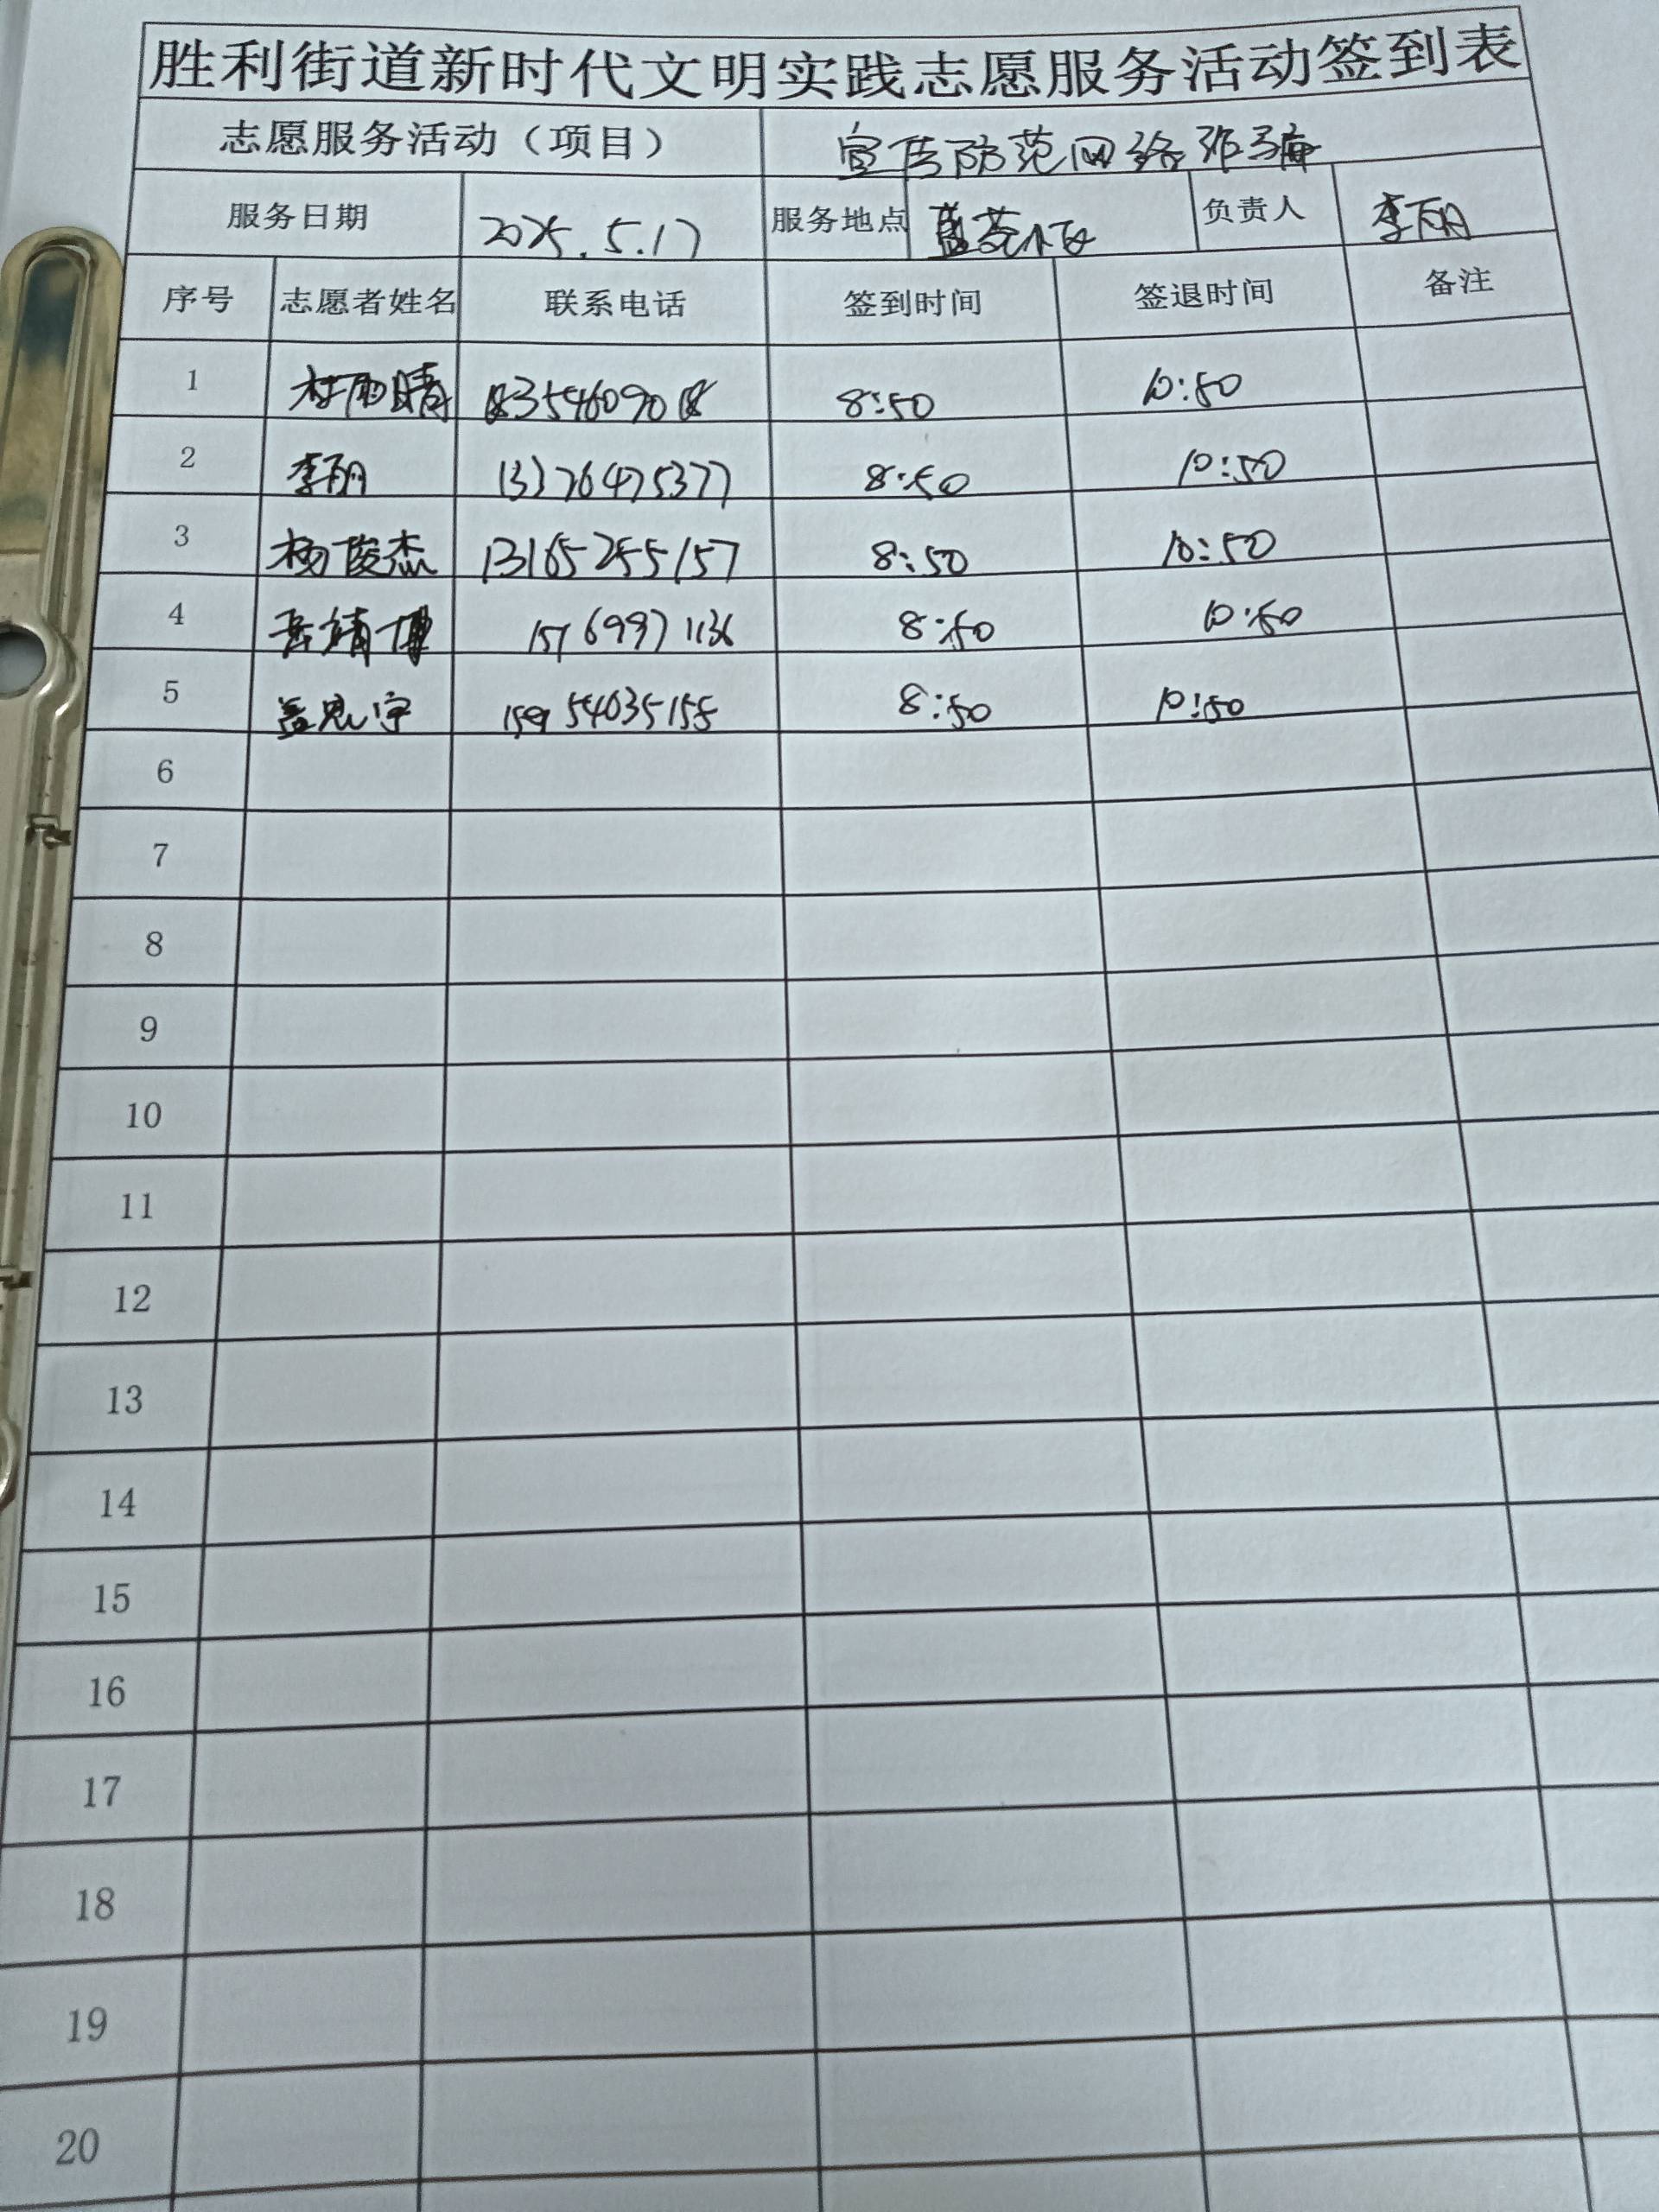 胜利街道新时代文明实践志愿服务活动签到表
志愿服务活动（项目） 宣传防范网络诈骗
服务日期 2025.5.17 服务地点 小区 负责人 李丽
序号 志愿者姓名 联系电话 签到时间 签退时间 备注
1 杜雨晴 8:50 10:50
2 李丽 13376475377 8:50 10:50
3 杨俊杰 13165255157 8:50 10:50
4 靖博 15169971136 8:50 10:50
5 孟思宇 15954035155 8:50 10:50
6
7
8
9
10
11
12
13
14
15
16
17
18
19
20